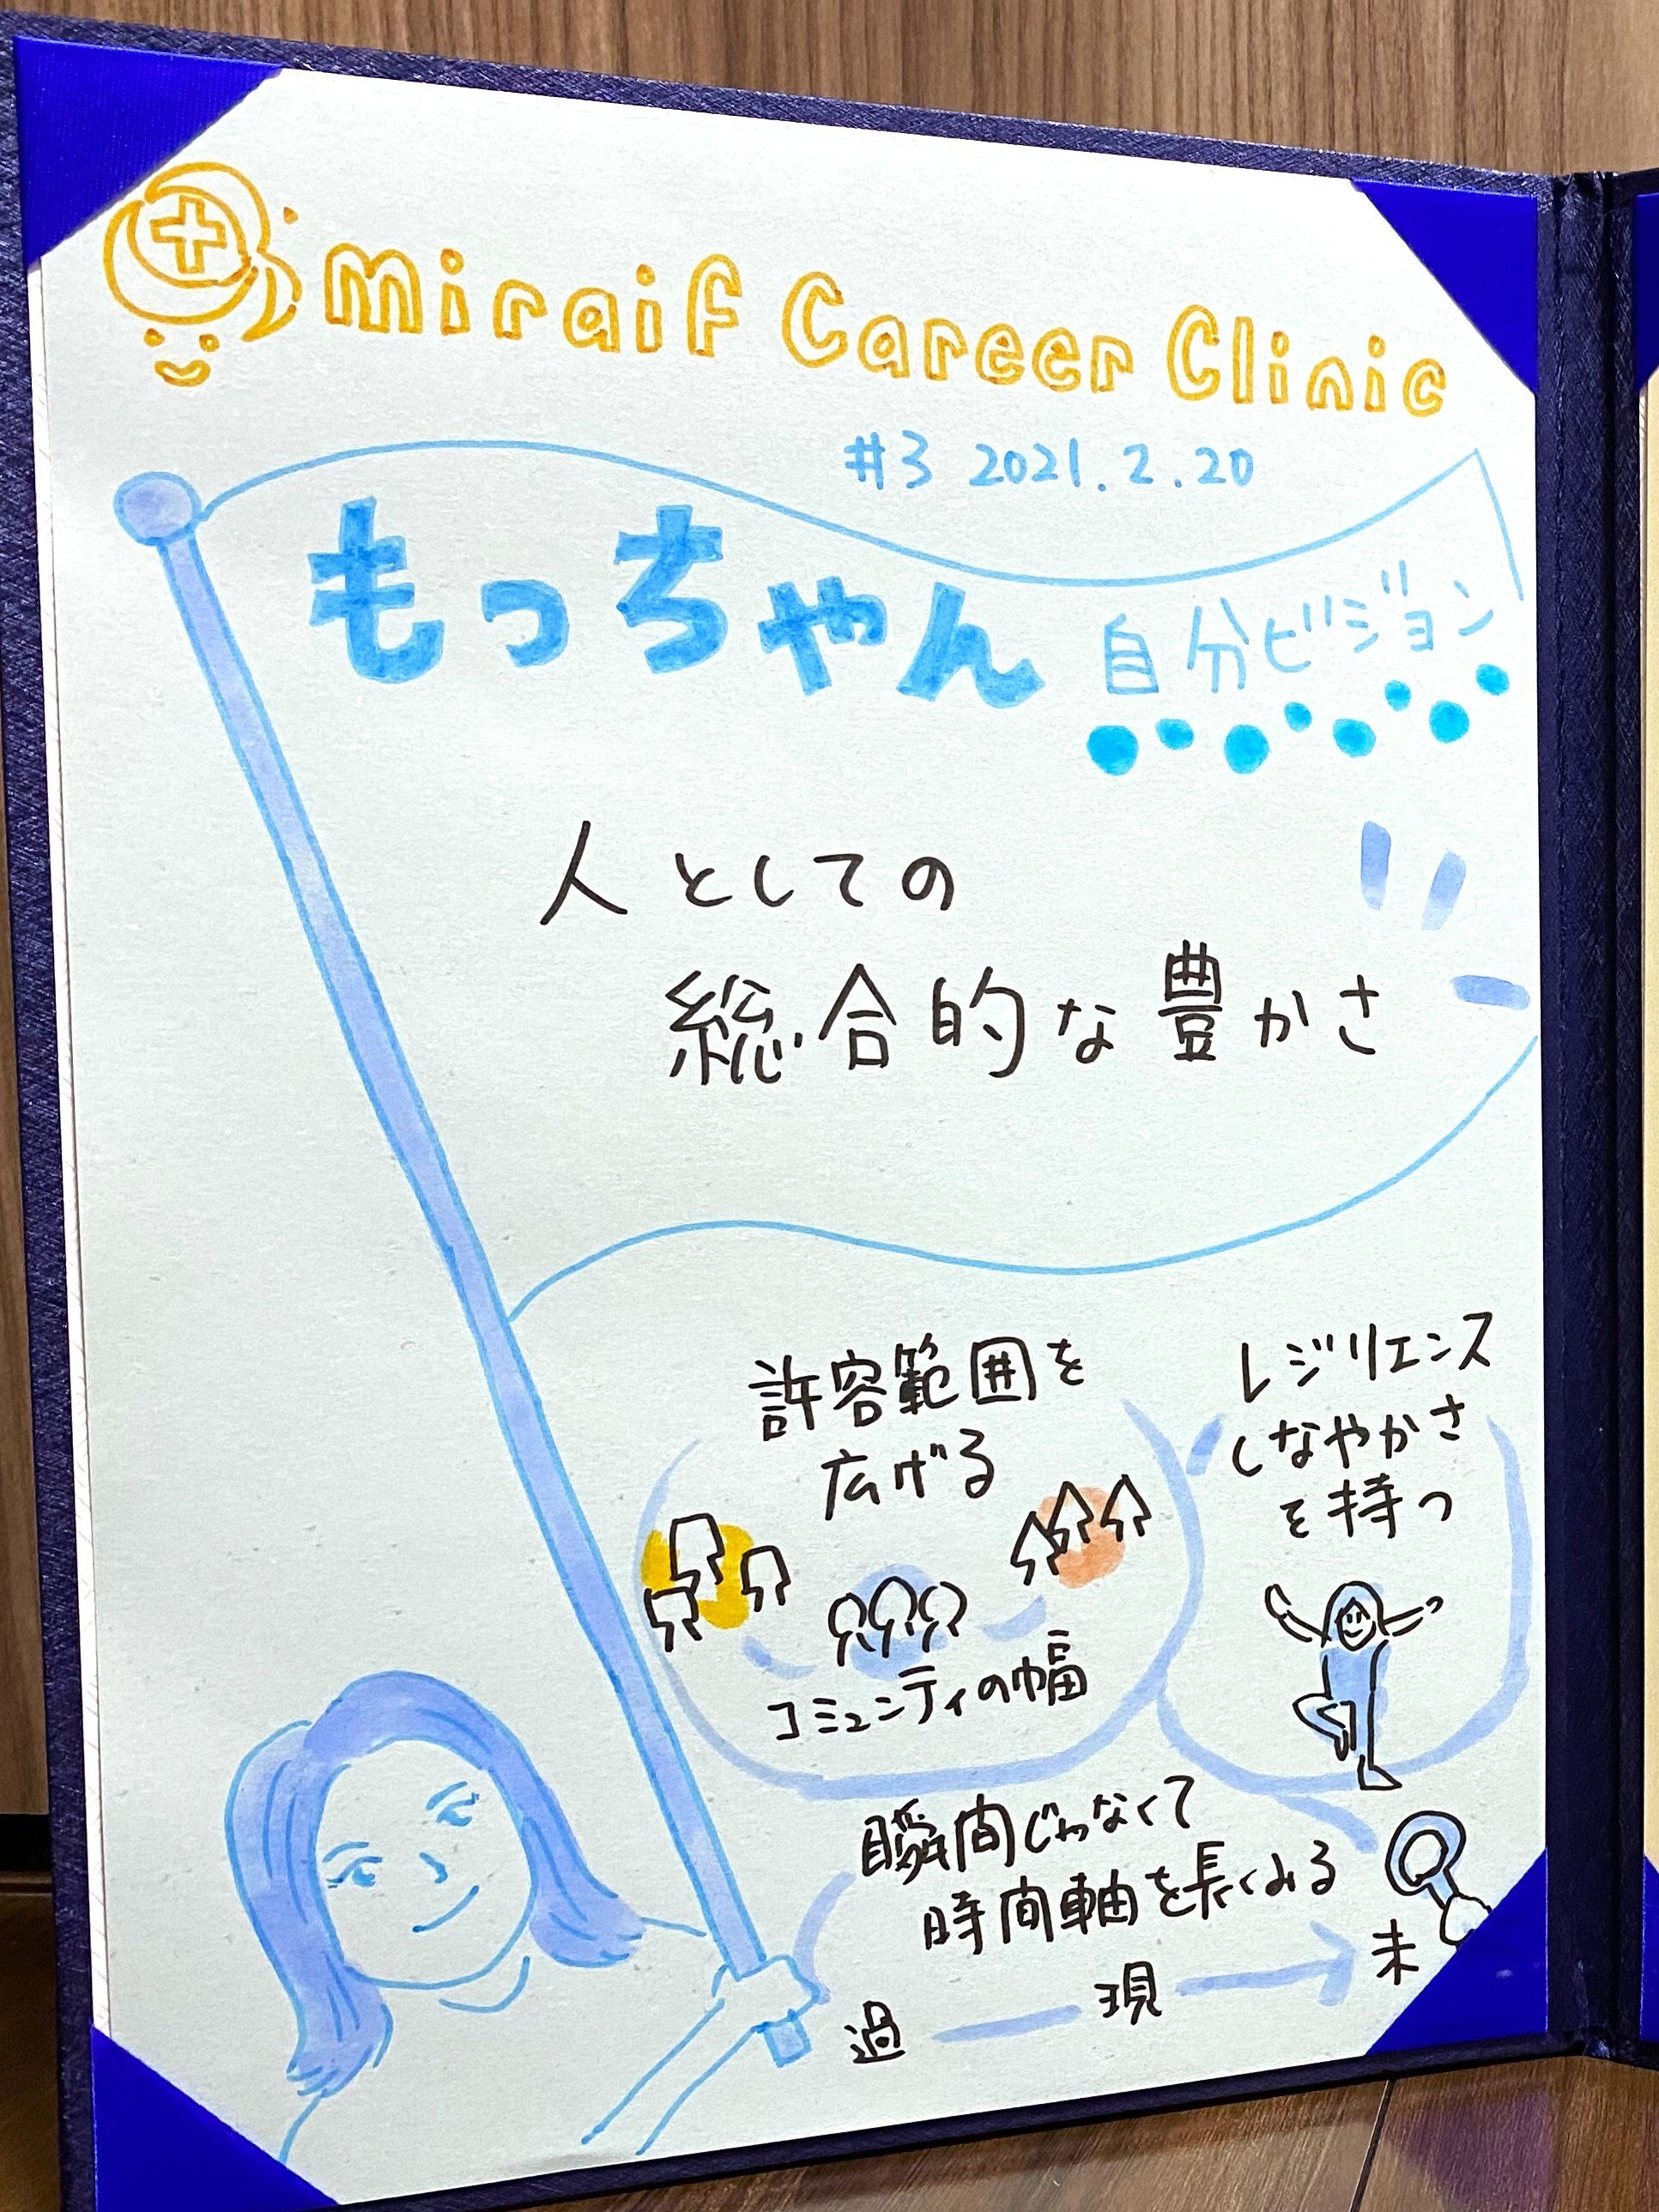 miraif Career Clinic
#3 2021.2.20
もっちゃん 自分ビジョン
人としての
総合的な豊かさ
許容範囲を
広げる
コミュニティの幅
レジリエンス
しなやかさ
を持つ
瞬間じゃなくて
時間軸を長くみる
過 現 未